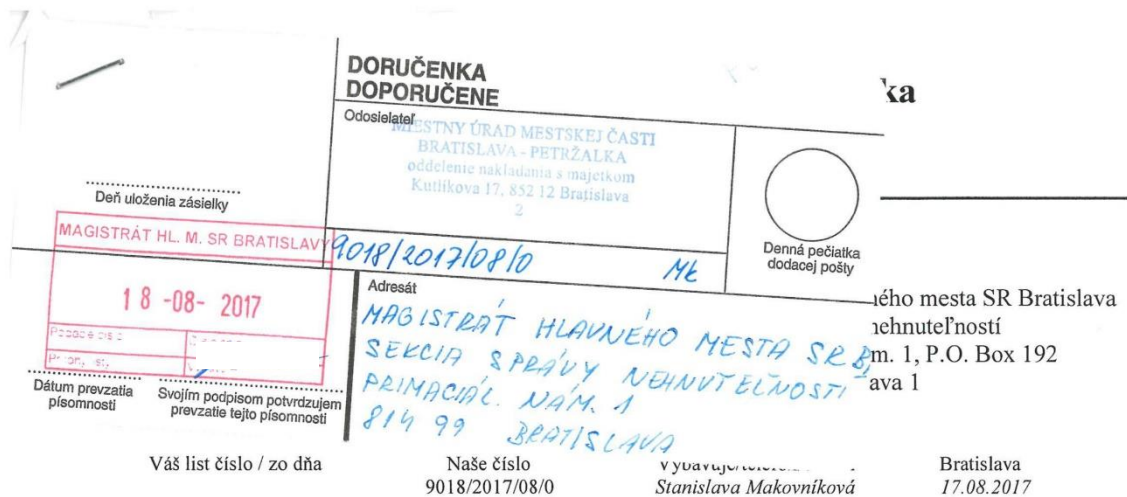 DORUČENKA
DOPORUČENE
ka
Odosielateľ
MIESTNY ÚRAD MESTSKEJ ČASTI
BRATISLAVA - PETRŽALKA
oddelenie nakladania s majetkom
Kutlíkova 17, 852 12 Bratislava
2
Deň uloženia zásielky
Denná pečiatka
dodacej pošty
MAGISTRÁT HL. M. SR BRATISLAVY
18 -08- 2017
9018/2017/08/0 Mk
Adresát
MAGISTRÁT HLAVNÉHO MESTA SR B
SEKCIA SPRÁVY NEHNUTEĽNOSTÍ
PRIMACIÁL. NÁM. 1
814 99 BRATISLAVA
ného mesta SR Bratislava
nehnuteľností
m. 1, P.O. Box 192
ava 1
Dátum prevzatia
písomnosti
Svojím podpisom potvrdzujem
prevzatie tejto písomnosti
Váš list číslo / zo dňa
Naše číslo
9018/2017/08/0
Stanislava Makovníková
Bratislava
17.08.2017